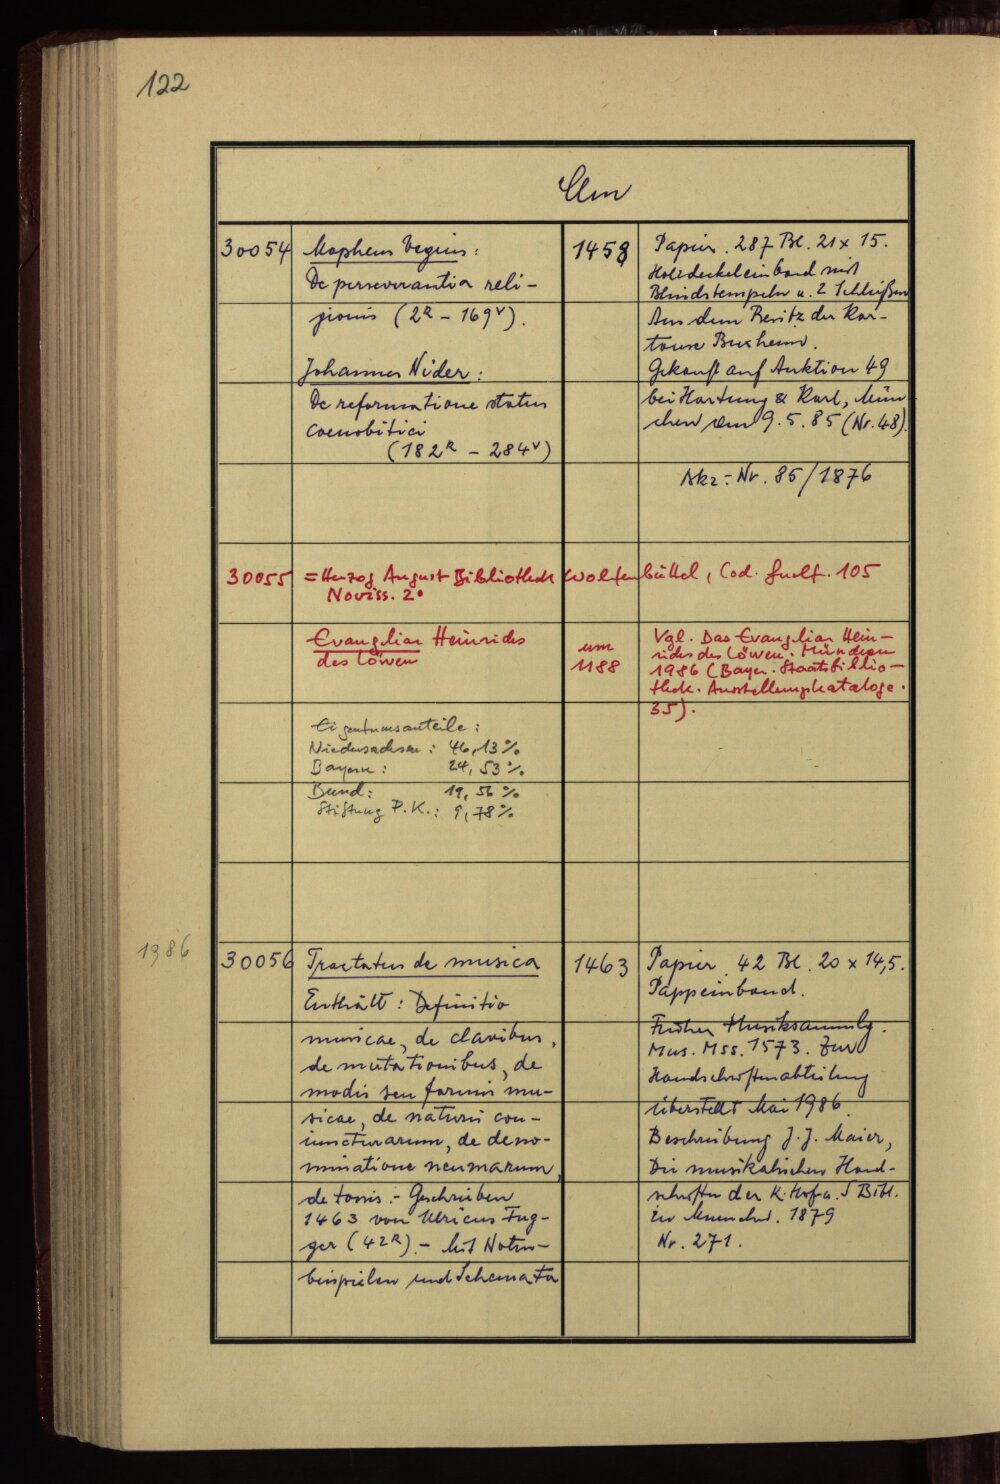 122
Clm
30054
Mapheus Vegius:
De perseverantia reli-
gionis (2R – 169v).
Johannes Nider:
De reformatione status
coenobitici
(182R – 284v)
1458
Papier. 287 Bl. 21 x 15.
Holzdeckeleinband mit
Blindstempeln u. 2 Schließen
Aus dem Besitz der Kar-
tause Buxheim.
Gekauft auf Auktion 49
bei Hartung & Karl, Mün-
chen am 9.5.85 (Nr. 48).
Akz.-Nr. 85/1876
30055
= Herzog August Bibliothek Wolfenbüttel, Cod. Guelf. 105
Noviss. 2°
Evangeliar Heinrichs
des Löwen
um
1188
Vgl. Das Evangeliar Hein-
richs des Löwen. München
1986 (Bayer. Staatsbiblio-
thek. Ausstellungskataloge.
35).
Eigentumsanteile:
Niedersachsen: 46,13%
Bayern: 24,53%
Bund: 19,56%
Stiftung P.K.: 9,78%
1986
30056
Tractatus de musica
Enthält: Definitio
musicae, de clavibus,
de mutationibus, de
modis seu formis mu-
sicae, de naturis con-
iuncturarum, de deno-
minatione neumarum,
de tonis. – Geschrieben
1463 von Ulricus Fug-
ger (42R). – Mit Noten-
beispielen und Schemata
1463
Papier. 42 Bl. 20 x 14,5.
Pappeinband.
Früher Musiksammlg.
Mus. Mss. 1573. Zur
Handschriftenabteilung
überstellt Mai 1986.
Beschreibung J.J. Maier,
Die musikalischen Hand-
schriften der K. Hof- u. S Bibl.
in Muenchen. 1879
Nr. 271.